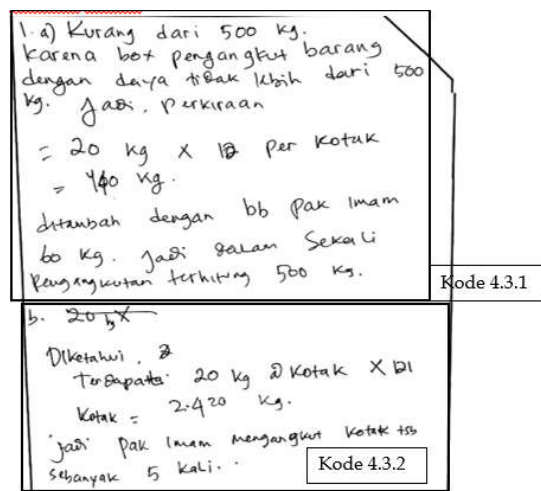 1. a) Kurang dari 500 kg.
Karena box pengangkut barang
dengan daya tidak lebih dari 500
kg. Jadi, perkiraan
= 20 kg x per kotak
= kg.
ditambah dengan bb Pak Imam
60 kg. Jadi dalam Sekali
Pengangkutan terhitung 500 kg.
Kode 4.3.1
b.
Diketahui,
Terdapat 20 kg @ kotak x 121
Kotak = 2.420 kg.
jadi Pak Imam mengangkut kotak tsb
sebanyak 5 kali.
Kode 4.3.2